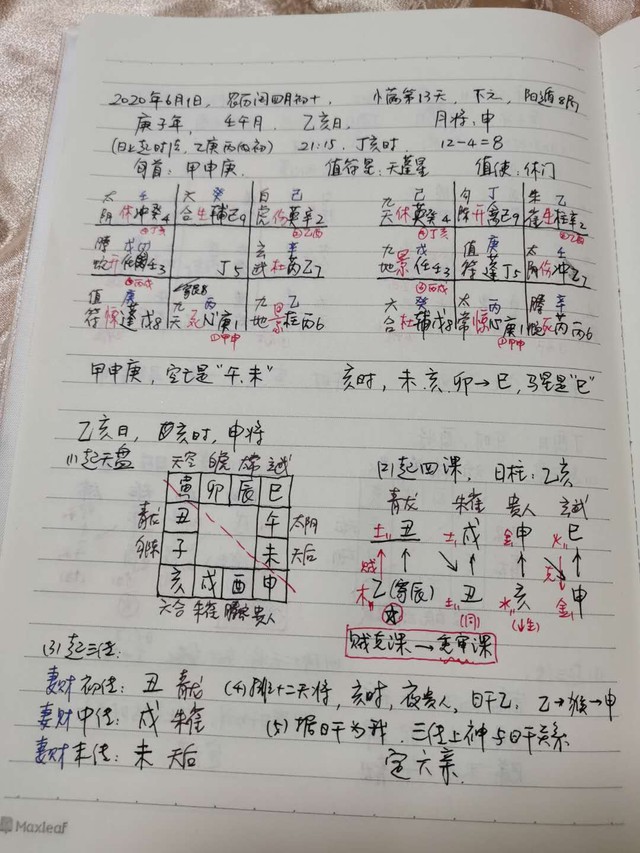 2020年6月1日, 农历闰四月初十, 小满第13天, 下元, 阳遁8局
庚子年, 壬午月, 乙亥日, 月将:申
(日上起时法, 乙庚丙丙初) 21:15, 丁亥时, 12-4=8
旬首: 甲申庚. 值符星: 天蓬星 值使: 休门
太 壬 六 癸 白 己
阴 休冲癸4 合 生辅己9 虎 伤英辛2
丁亥 乙酉
螣 戊 玄 辛
蛇 开任壬3 丁5 武 杜芮乙7
丙戌
值 庚 九 丙 九 乙
符 惊蓬戊8 天 死心庚1 地 景柱丙6
甲申
九 己 勾 丁 朱 乙
天 休英癸4 陈 开禽己9 雀 生柱辛2
丁亥 乙酉
九 戊 值 庚 太 壬
地 景任壬3 符 蓬丁5 阴 伤冲乙7
丙戌
六 癸 太 丙 螣 辛
合 杜辅戊8 常 惊心庚1 蛇 死芮丙6
甲申
甲申庚, 空亡是"午.未" 亥时, 未.亥.卯→巳, 马星是"巳"
乙亥日, 亥时, 申将
(1)起天盘
天空 白虎 太常 玄武
寅 卯 辰 巳
青龙 丑 午 太阴
勾陈 子 未 天后
亥 戌 酉 申
六合 朱雀 螣蛇 贵人
(2)起四课, 日柱:乙亥
青龙 朱雀 贵人 玄武
土 丑 土 戌 金 申 火 巳
贼 克
木 乙(寄辰) 土 丑 水 亥 金 申
贼克课→重审课
(3)起三传:
妻财 初传: 丑 青龙
妻财 中传: 戌 朱雀
妻财 末传: 未 天后
(4)排十二天将, 亥时, 夜贵人, 日干乙, 乙→猴→申
(5)据日干为我, 三传上神与日干关系
定六亲.
Maxleaf